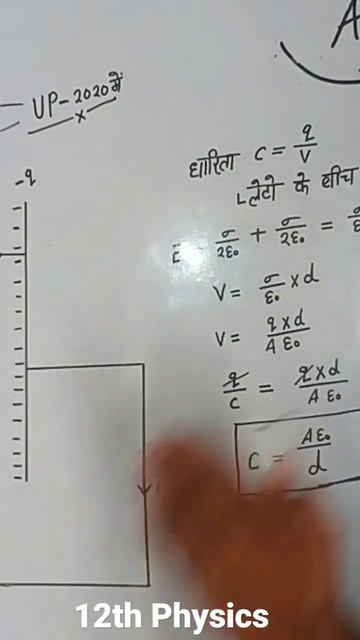 A
UP-2020में
x
-q
धारिता C = q/V
प्लेटो के बीच
E = σ/2ε₀ + σ/2ε₀ = σ/ε
V = σ/ε₀ x d
V = q x d / A ε₀
q/C = q x d / A ε₀
C = A ε₀ / d
12th Physics